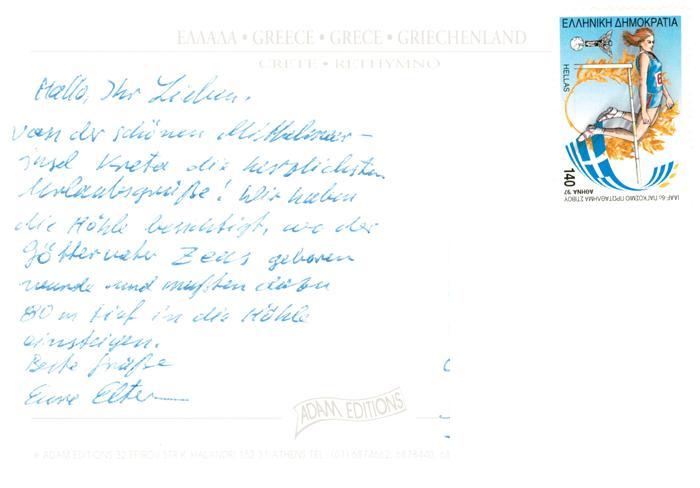 ΕΛΛΑΔΑ • GREECE • GRECE • GRIECHENLAND
CRETE • RETHYMNO
Hallo, Ihr Lieben,
von der schönen Mittelmeer-
insel Kreta die herzlichsten
Urlaubsgrüße! Wir haben
die Höhle besichtigt, wo der
Göttervater Zeus geboren
wurde und mußten dazu
80 m tief in die Höhle
einsteigen.
Beste Grüße
Eure Elter
ADAM EDITIONS
ADAM EDITIONS 32 EPIROU STR K. HALANDRI 152 31 ATHENS TEL.: (01) 6874662, 6878440, 68
ΕΛΛΗΝΙΚΗ ΔΗΜΟΚΡΑΤΙΑ
HELLAS
140
ΑΘΗΝΑ '97
IAAF 6ο ΠΑΓΚΟΣΜΙΟ ΠΡΩΤΑΘΛΗΜΑ ΣΤΙΒΟΥ